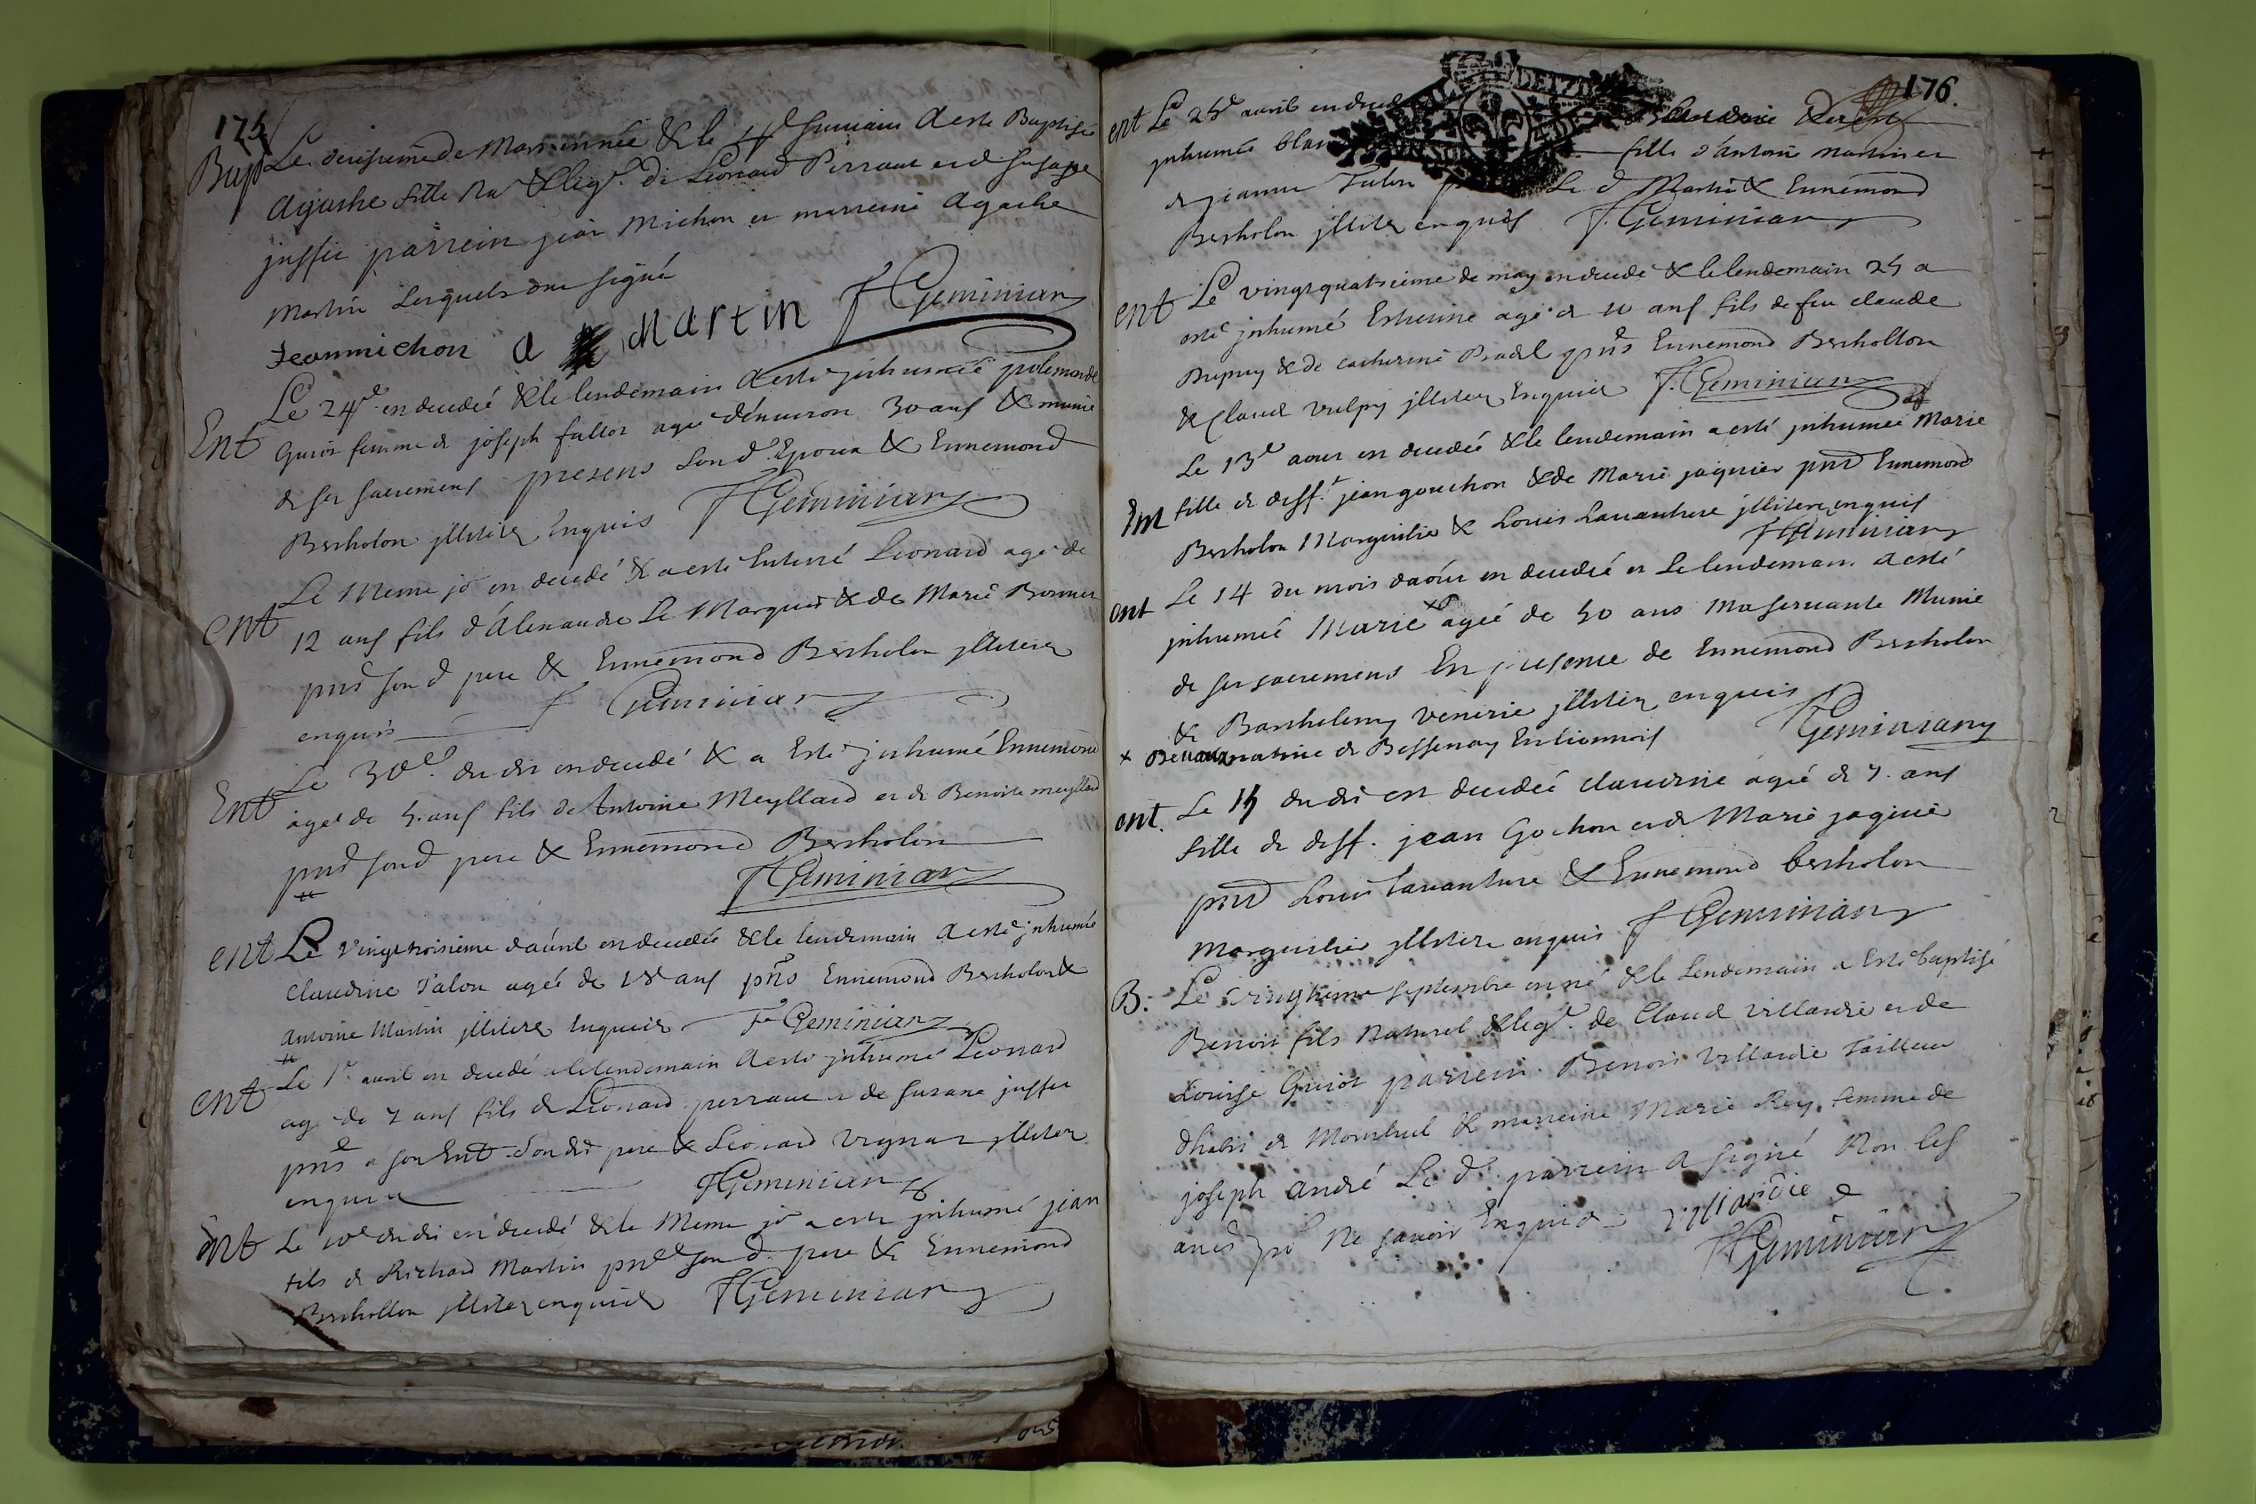 175
Bap Le de Mars est née & le suivant a esté Baptisée
Agathe fille na. & leg. de Leonard Perraut et de Susane
juffet parrein jean Michon et marreine Agathe
Martin Lesquels ont signé
Jeanmichon a Martin F Geminian
Ent Le 24e est decedée & le lendemain a esté inhumée
guiot femme de joseph fallot agée d'environ 30 ans & munie
de ses sacremens presens son d. Epoux & Ennemond
Bertholon jlliterez Enquis F Geminian
ent Le Meme jr est decedé & a esté Enterré Leonard agé de
12 ans fils d'Alexandre Le Marquis & de Marie Bonnet
pnts son d pere & Ennemond Bertholon jlliterez
enquis F Geminian
Ent Le 30e du dit est decedé & a Esté jnhumé Ennemond
agé de 5 ans fils de Antoine Meyllard et de Benoite meyllard
pnts son d pere & Ennemond Bertholon
F Geminian
ent Le vingttroisieme d'avril est decedée & le lendemain a esté jnhumée
Claudine Talon agée de 18 ans pnts Ennemond Bertholon &
Antoine Martin jlliterez Enquis F Geminian
ent Le 1r avril est decedé & le lendemain a esté jnhumé Leonard
agé de 7 ans fils de Leonard perraut et de Susane juffet
pnts a son Ent. son dit pere & Leonard Vignat jlliterez
enquis F Geminian
ent Le 10e du dit est decedé & le Meme jr a esté jnhumé jean
fils de Richard Martin pnts son d. pere & Ennemond
Berthollon jlliterez enquis F Geminian
176.
ent Le 25e avril est deced
jnhumée Claudine
fille d'antoine Martin et
de jeanne Talon Le d Martin & Ennemond
Bertholon jlliterez enquis F. Geminian
ent Le vingtquatrieme de may est decedé & le lendemain 25 a
esté jnhumé Estienne agé de 10 ans fils de feu claude
Dupuy & de catherine Pradel pnts Ennemond Berthollon
& Claud Vulpy jlliterez Enquis F. Geminian
Ent Le 13e aout est decedée & le lendemain a esté jnhumée Marie
fille de deff.t jean gouchon & de Marie jaquier pnts Ennemond
Bertholon Marguilier & Louis Lavanture jlliterez enquis
F Geminian
ent Le 14 du mois daoût est decedée et Le lendeman a esté
jnhumée Marie x agée de 50 ans Ma servante Munie
de ses sacremens En presence de Ennemond Bertholon
& Barthelemy Venerie jlliterez enquis
x Benaux native de Bessenay En lionnois F Geminiany
ent. Le 15 du dit est decedée claudine agée de 7. ans
fille de deff. jean Gochon et de Marie jaquier
pnts Louis Lavanture & Ennemond bertholon
Marguilier jlliterez enquis F Geminian
B. Le vingtieme septembre est né & le Lendemain a Esté baptisé
Benoit fils Naturel & leg. de Claud villardie et de
Louise Guiot parrein Benoit Villardie Tailleur
dhabit de Montluel & marreine Marie Rey femme de
joseph André Le d. parrein a signé Non les
autres pr Ne savoir Enquis villardie
F Geminian